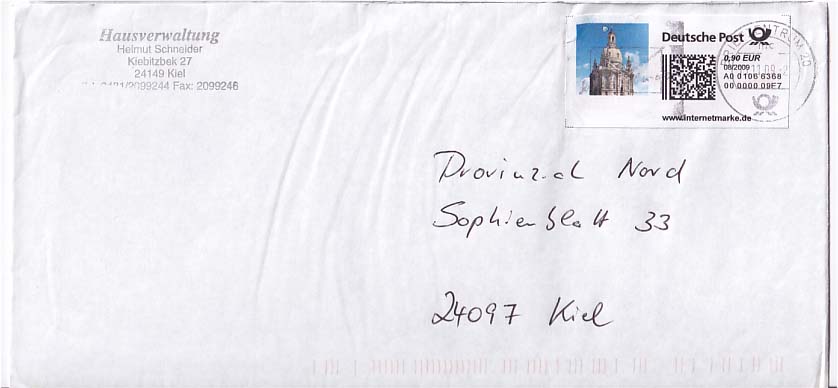 Hausverwaltung
Helmut Schneider
Kiebitzbek 27
24149 Kiel
2099244 Fax: 2099246
Deutsche Post
0,90 EUR
08/2009
A0 0106 6368
00 0000 09E7
www.internetmarke.de
BRIEFZENTRUM 20
Provinzial Nord
Sophienblatt 33
24097 Kiel